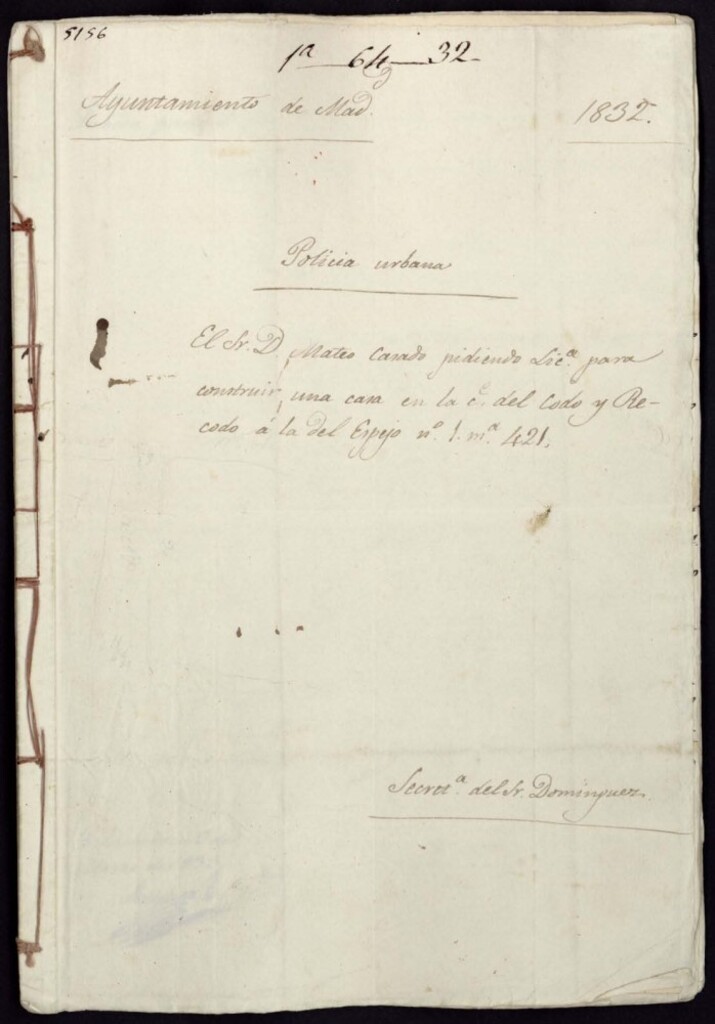 5156
1ª 64 32
Ayuntamiento de Mad.d
1832.
Policia urbana
El Sr. D. Mateo Casado pidiendo Lic.ª para
construir una casa en la c.e del Codo y Re-
codo á la del Espejo nº. 1. m.ª 421.
Secret.ª del Sr. Dominguez.